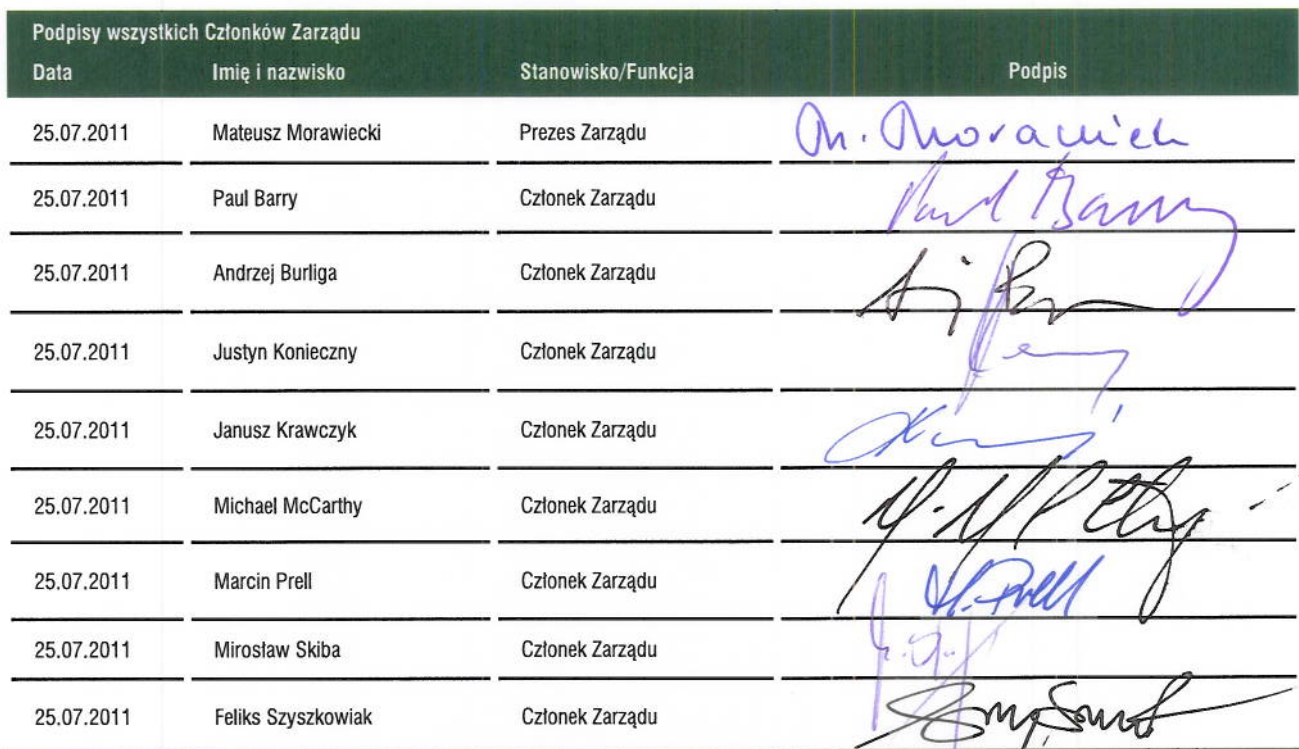 Podpisy wszystkich Członków Zarządu
Data Imię i nazwisko Stanowisko/Funkcja Podpis
25.07.2011 Mateusz Morawiecki Prezes Zarządu M. Morawiecki
25.07.2011 Paul Barry Członek Zarządu Paul Barry
25.07.2011 Andrzej Burliga Członek Zarządu
25.07.2011 Justyn Konieczny Członek Zarządu
25.07.2011 Janusz Krawczyk Członek Zarządu
25.07.2011 Michael McCarthy Członek Zarządu
25.07.2011 Marcin Prell Członek Zarządu M. Prell
25.07.2011 Mirosław Skiba Członek Zarządu
25.07.2011 Feliks Szyszkowiak Członek Zarządu